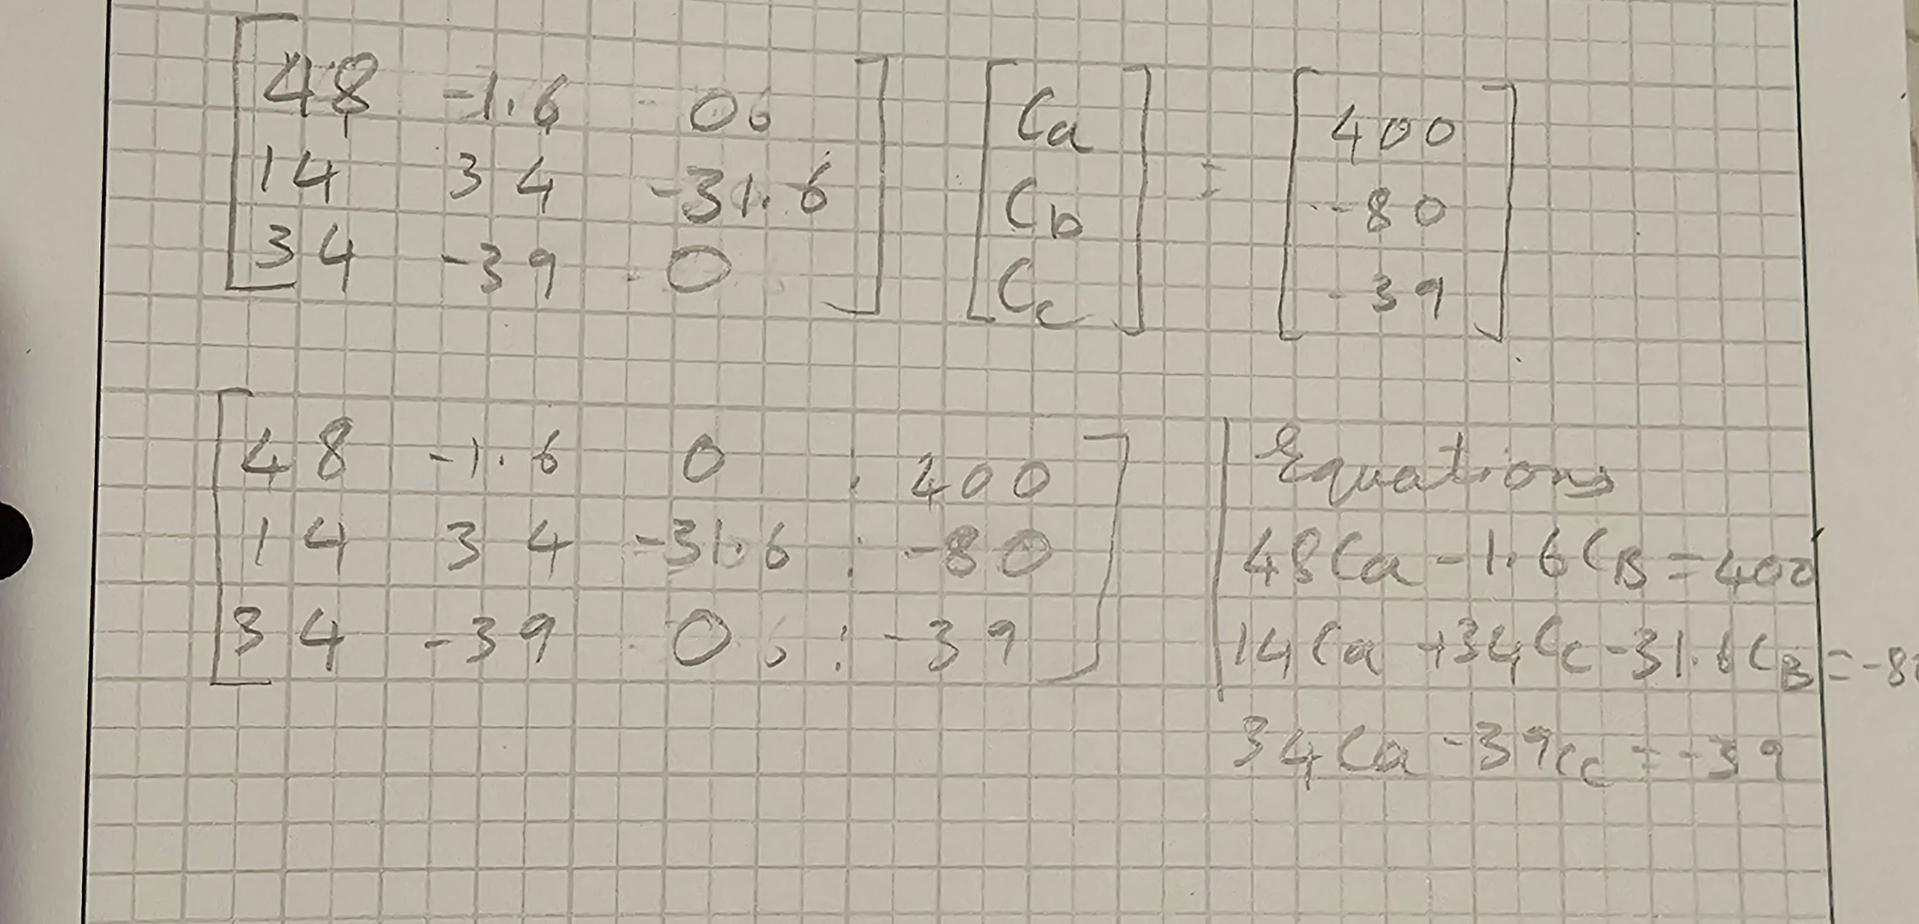 48 -1.6 0 Ca = 400
14 34 -31.6 Cb -80
34 -39 0 Cc -39
48 -1.6 0 : 400
14 34 -31.6 : -80
34 -39 0 : -39
Equations
48Ca - 1.6CB = 400
14Ca + 34Cc - 31.6CB = -80
34Ca - 39Cc = -39